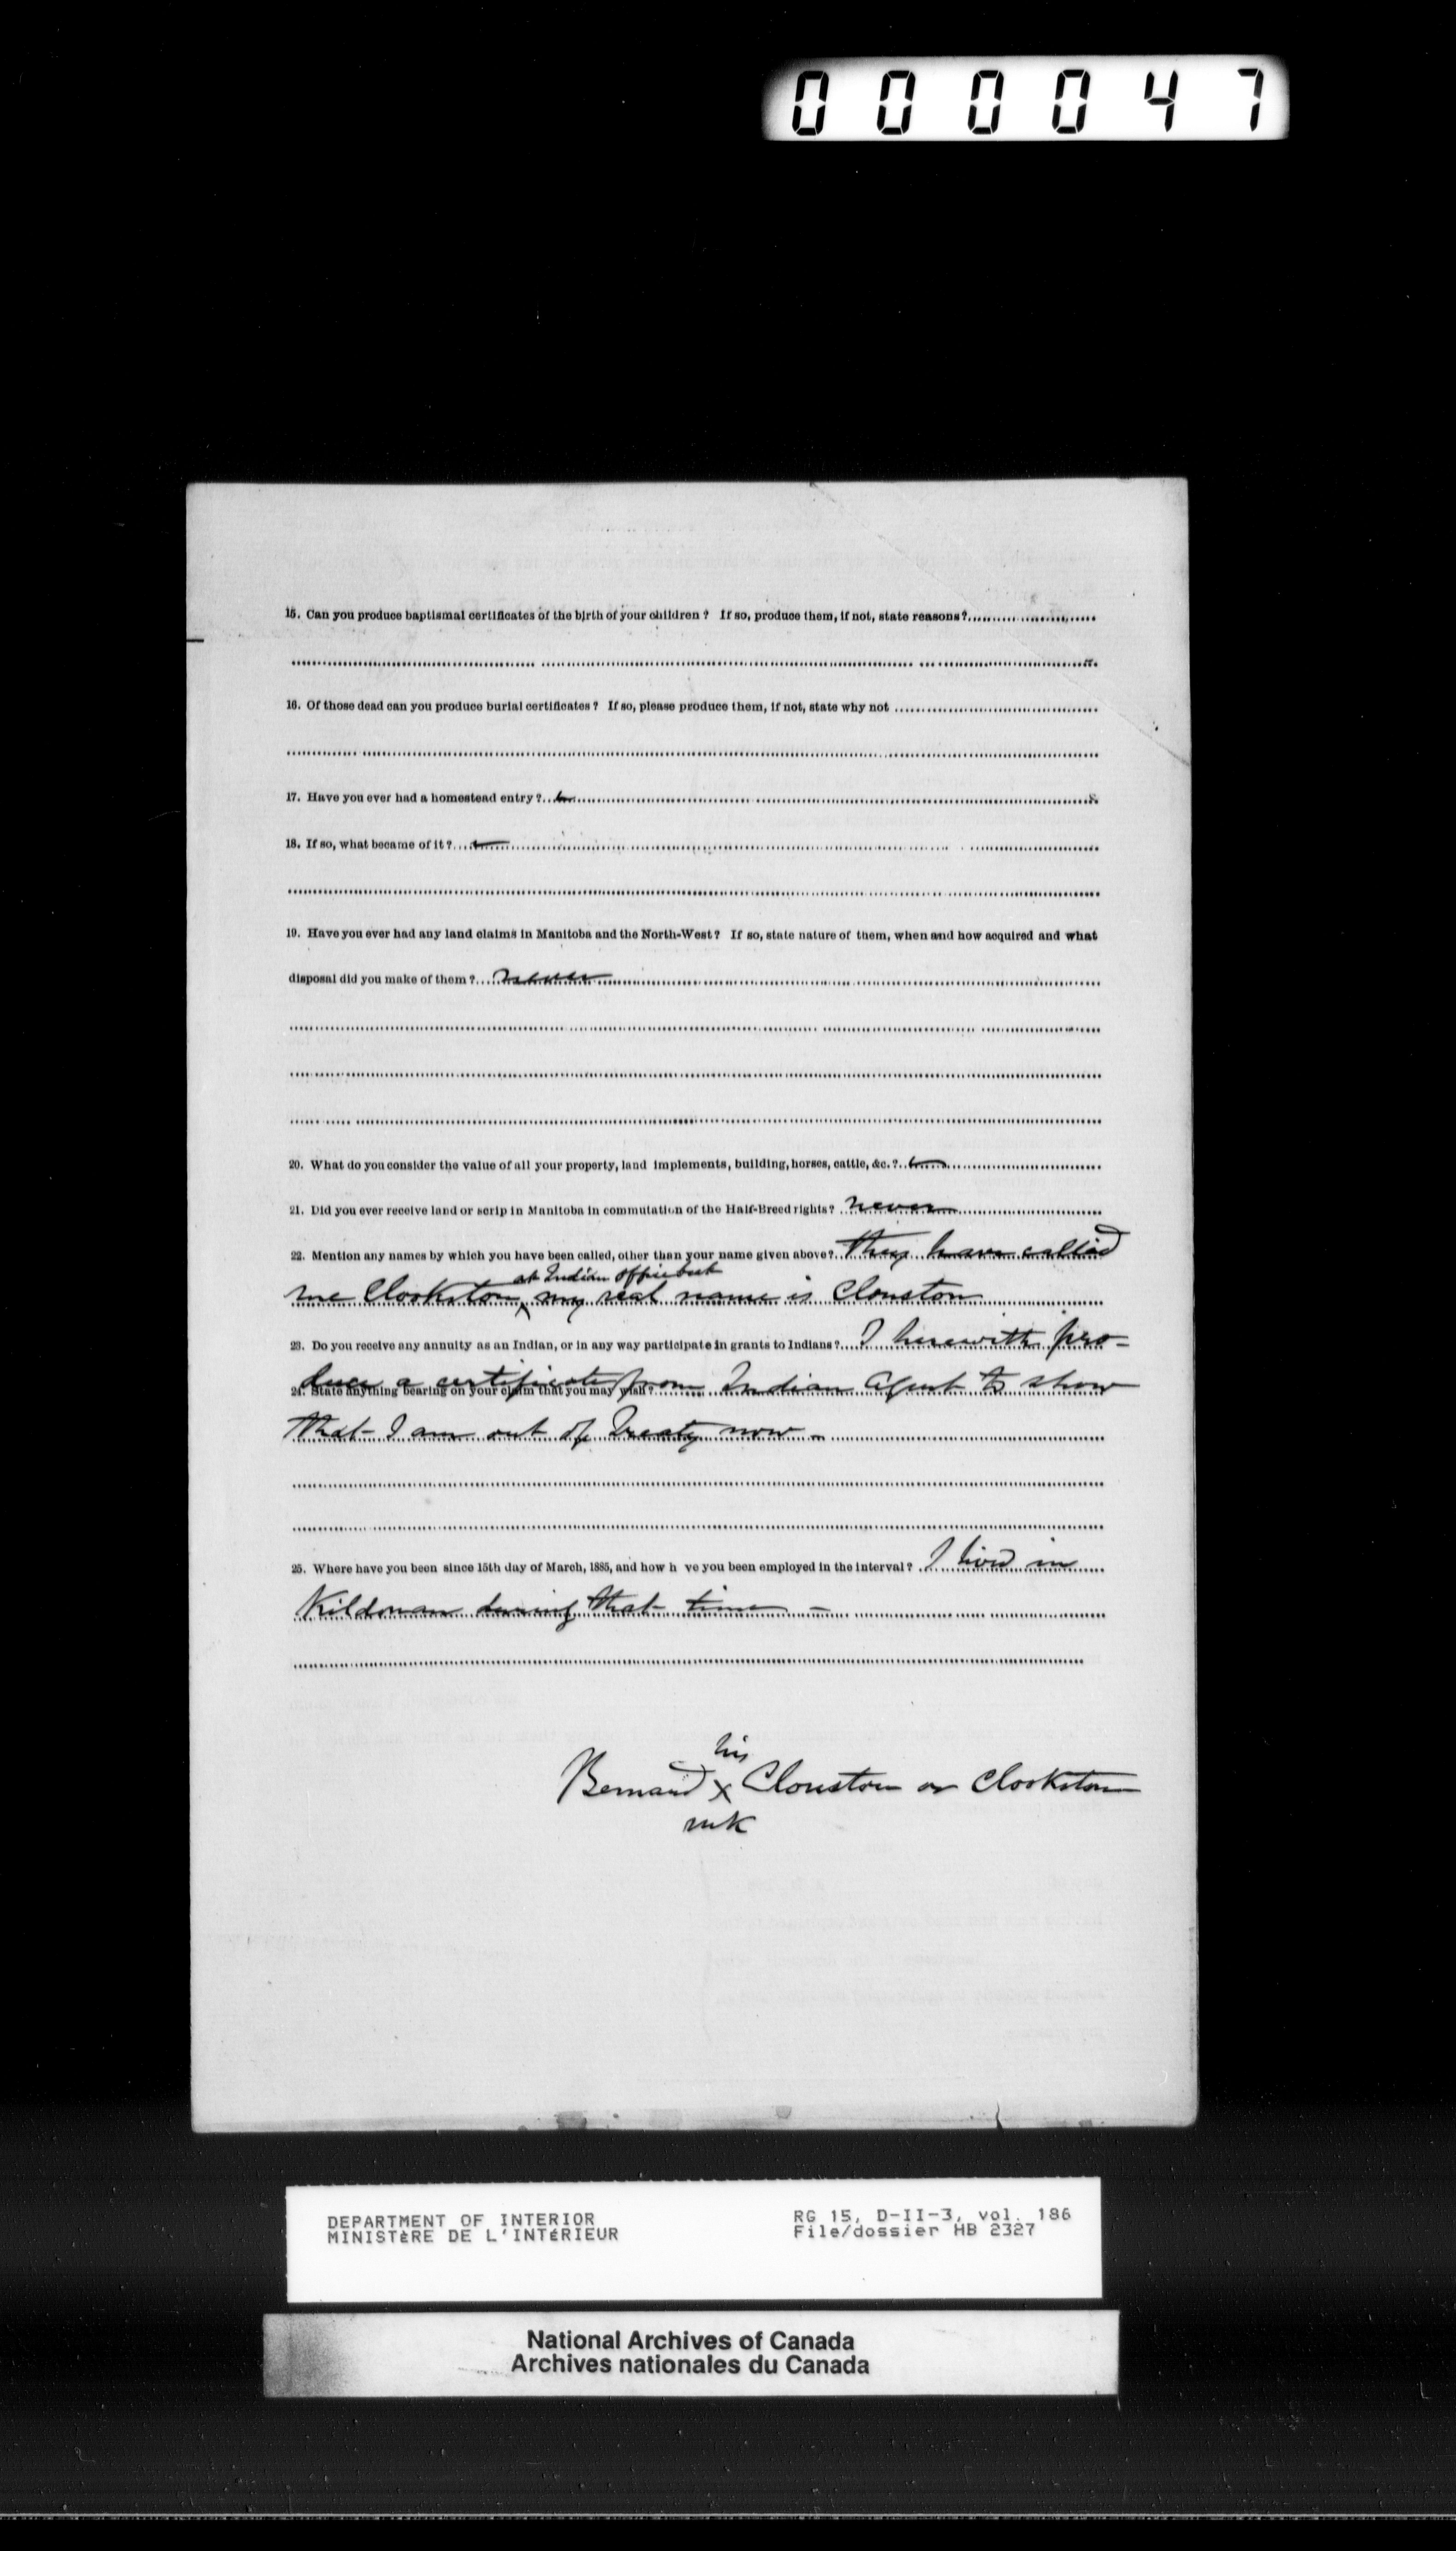 000047
15. Can you produce baptismal certificates of the birth of your children? If so, produce them, if not, state reasons?
16. Of those dead can you produce burial certificates? If so, please produce them, if not, state why not
17. Have you ever had a homestead entry?
18. If so, what became of it?
19. Have you ever had any land claims in Manitoba and the North-West? If so, state nature of them, when and how acquired and what
disposal did you make of them? never
20. What do you consider the value of all your property, land implements, building, horses, cattle, &c.?
21. Did you ever receive land or scrip in Manitoba in commutation of the Half-Breed rights? never
22. Mention any names by which you have been called, other than your name given above? They have called
at Indian office but
me Clookston my real name is Clouston
23. Do you receive any annuity as an Indian, or in any way participate in grants to Indians? I herewith pro-
duce a certificate from Indian Agent to show
24. State anything bearing on your claim that you may wish?
that I am out of Treaty now -
25. Where have you been since 15th day of March, 1885, and how h ve you been employed in the interval? I lived in
Kildonan during that time -
his
Bernard x Clouston or Clookston
mk
DEPARTMENT OF INTERIOR
MINISTÈRE DE L'INTÉRIEUR
RG 15, D-II-3, vol. 186
File/dossier HB 2327
National Archives of Canada
Archives nationales du Canada